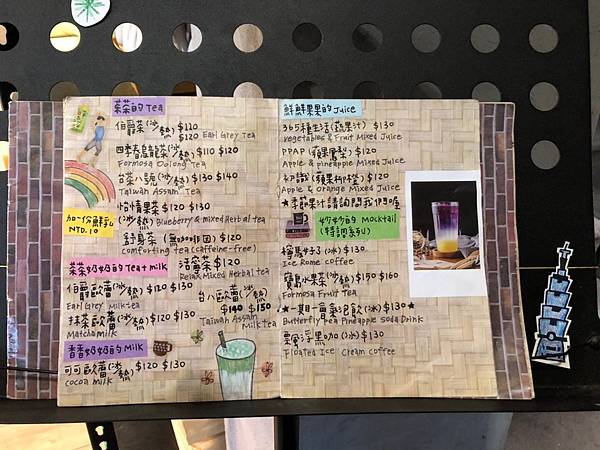 茶茶的 Tea
伯爵茶(冰/熱) $120 $120
Earl Grey Tea
四季春烏龍茶(冰/熱) $110 $120
Formosa Oolong Tea
台茶八號(冰/熱) $130 $140
Taiwan Assam Tea
怡情果茶 $120 $130
(冰/熱) Blueberry & mixed Herbal tea
加一份鮮乳
NTD.10
舒身茶(無咖啡因) $120
comforting tea (caffeine-free)
茶茶奶奶的 Tea + milk
活蜜茶 $120
Relax Mixed Herbal tea
伯爵歐蕾(冰/熱) $120 $130
Earl Grey Milk tea
台八歐蕾(冰/熱)
$140 $150
Taiwan Assam
Milk tea
抹茶歐蕾(冰/熱) $120 $130
Matcha milk
香香奶奶的 Milk
可可歐蕾(冰/熱) $120 $130
cocoa milk
鮮鮮果果的 Juice
365種生活(蔬果汁) $130
vegetables & Fruit Mixed Juice
PPAP (蘋果鳳梨) $120
Apple & pineapple Mixed Juice
初識(蘋果柳橙) $120
Apple & orange Mixed Juice
★季節果汁請詢問我們喔
奶奶的 Mocktail
(特調系列)
檸馬好了(冰) $130
Ice Rome coffee
寶島水果茶(冰/熱) $150 $160
Formosa Fruit Tea
(冰) $130★
Butterfly Pea Pineapple Soda Drink
飄浮黑咖(冰) $130
Floated Ice Cream coffee